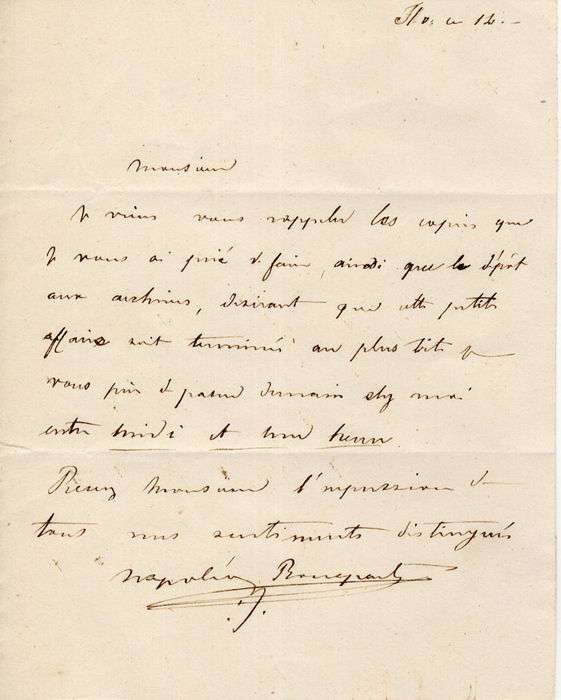 ce 12.
Monsieur
Je viens vous rappeler les copies que
je vous ai prié de faire, ainsi que le dépôt
aux archives, désirant que cette petite
affaire soit terminée au plus tôt je
vous prie de passer demain chez moi
entre midi et une heure.
Recevez Monsieur l'impression de
tous mes sentiments distingués
Napoléon Bonaparte